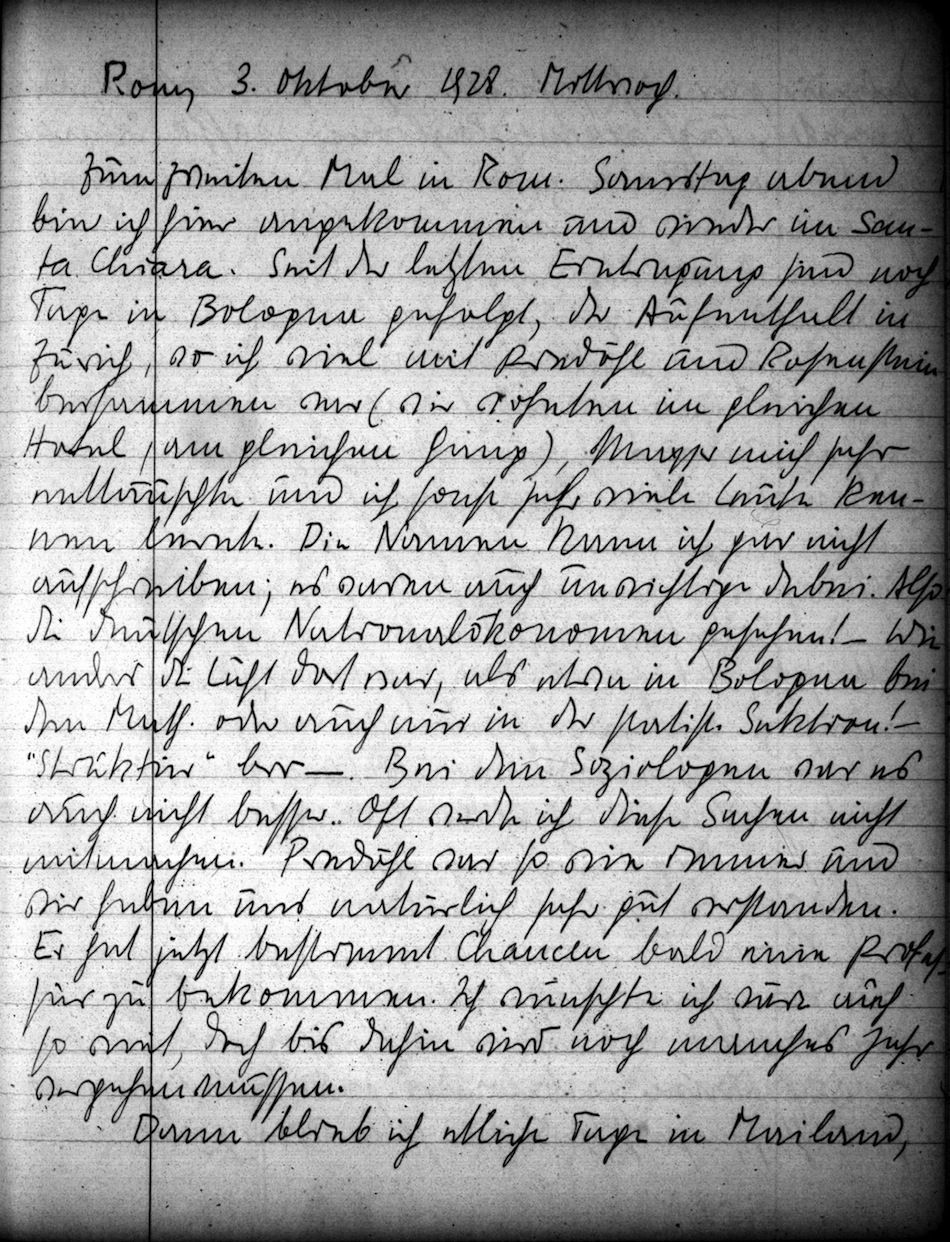 Rom, 3. Oktober 1928. Mittwoch.
Zum zweiten Mal in Rom. Samstag abend
bin ich hier angekommen und wieder im San-
ta Chiara. Seit der letzten Eintragung sind noch
Tage in Bologna gefolgt, der Aufenthalt in
Zürich, wo ich viel mit Predöhl und Rosenstein
beisammen war (wir wohnten im gleichen
Hotel, am gleichen Gang), mich sehr
enttäuschte und ich sonst sehr viele Leute ken-
nen lernte. Die Namen kann ich gar nicht
aufschreiben; es waren auch unwichtige dabei. Also
die deutschen Nationalökonomen gesehen! – Wie
anders die Luft dort war, als etwa in Bologna bei
den Math. oder auch nur in der statist. Sektion! –
"Struktur" brr —. Bei den Soziologen war es
auch nicht besser. Oft werde ich diese Sachen nicht
mitmachen. Predöhl war so wie immer und
wir haben uns natürlich sehr gut verstanden.
Er hat jetzt bestimmt Chancen bald eine Profes-
sur zu bekommen. Ich wünschte ich wäre auch
so weit, doch bis dahin wird noch manches Jahr
vergehen müssen.
Dann blieb ich etliche Tage in Mailand,